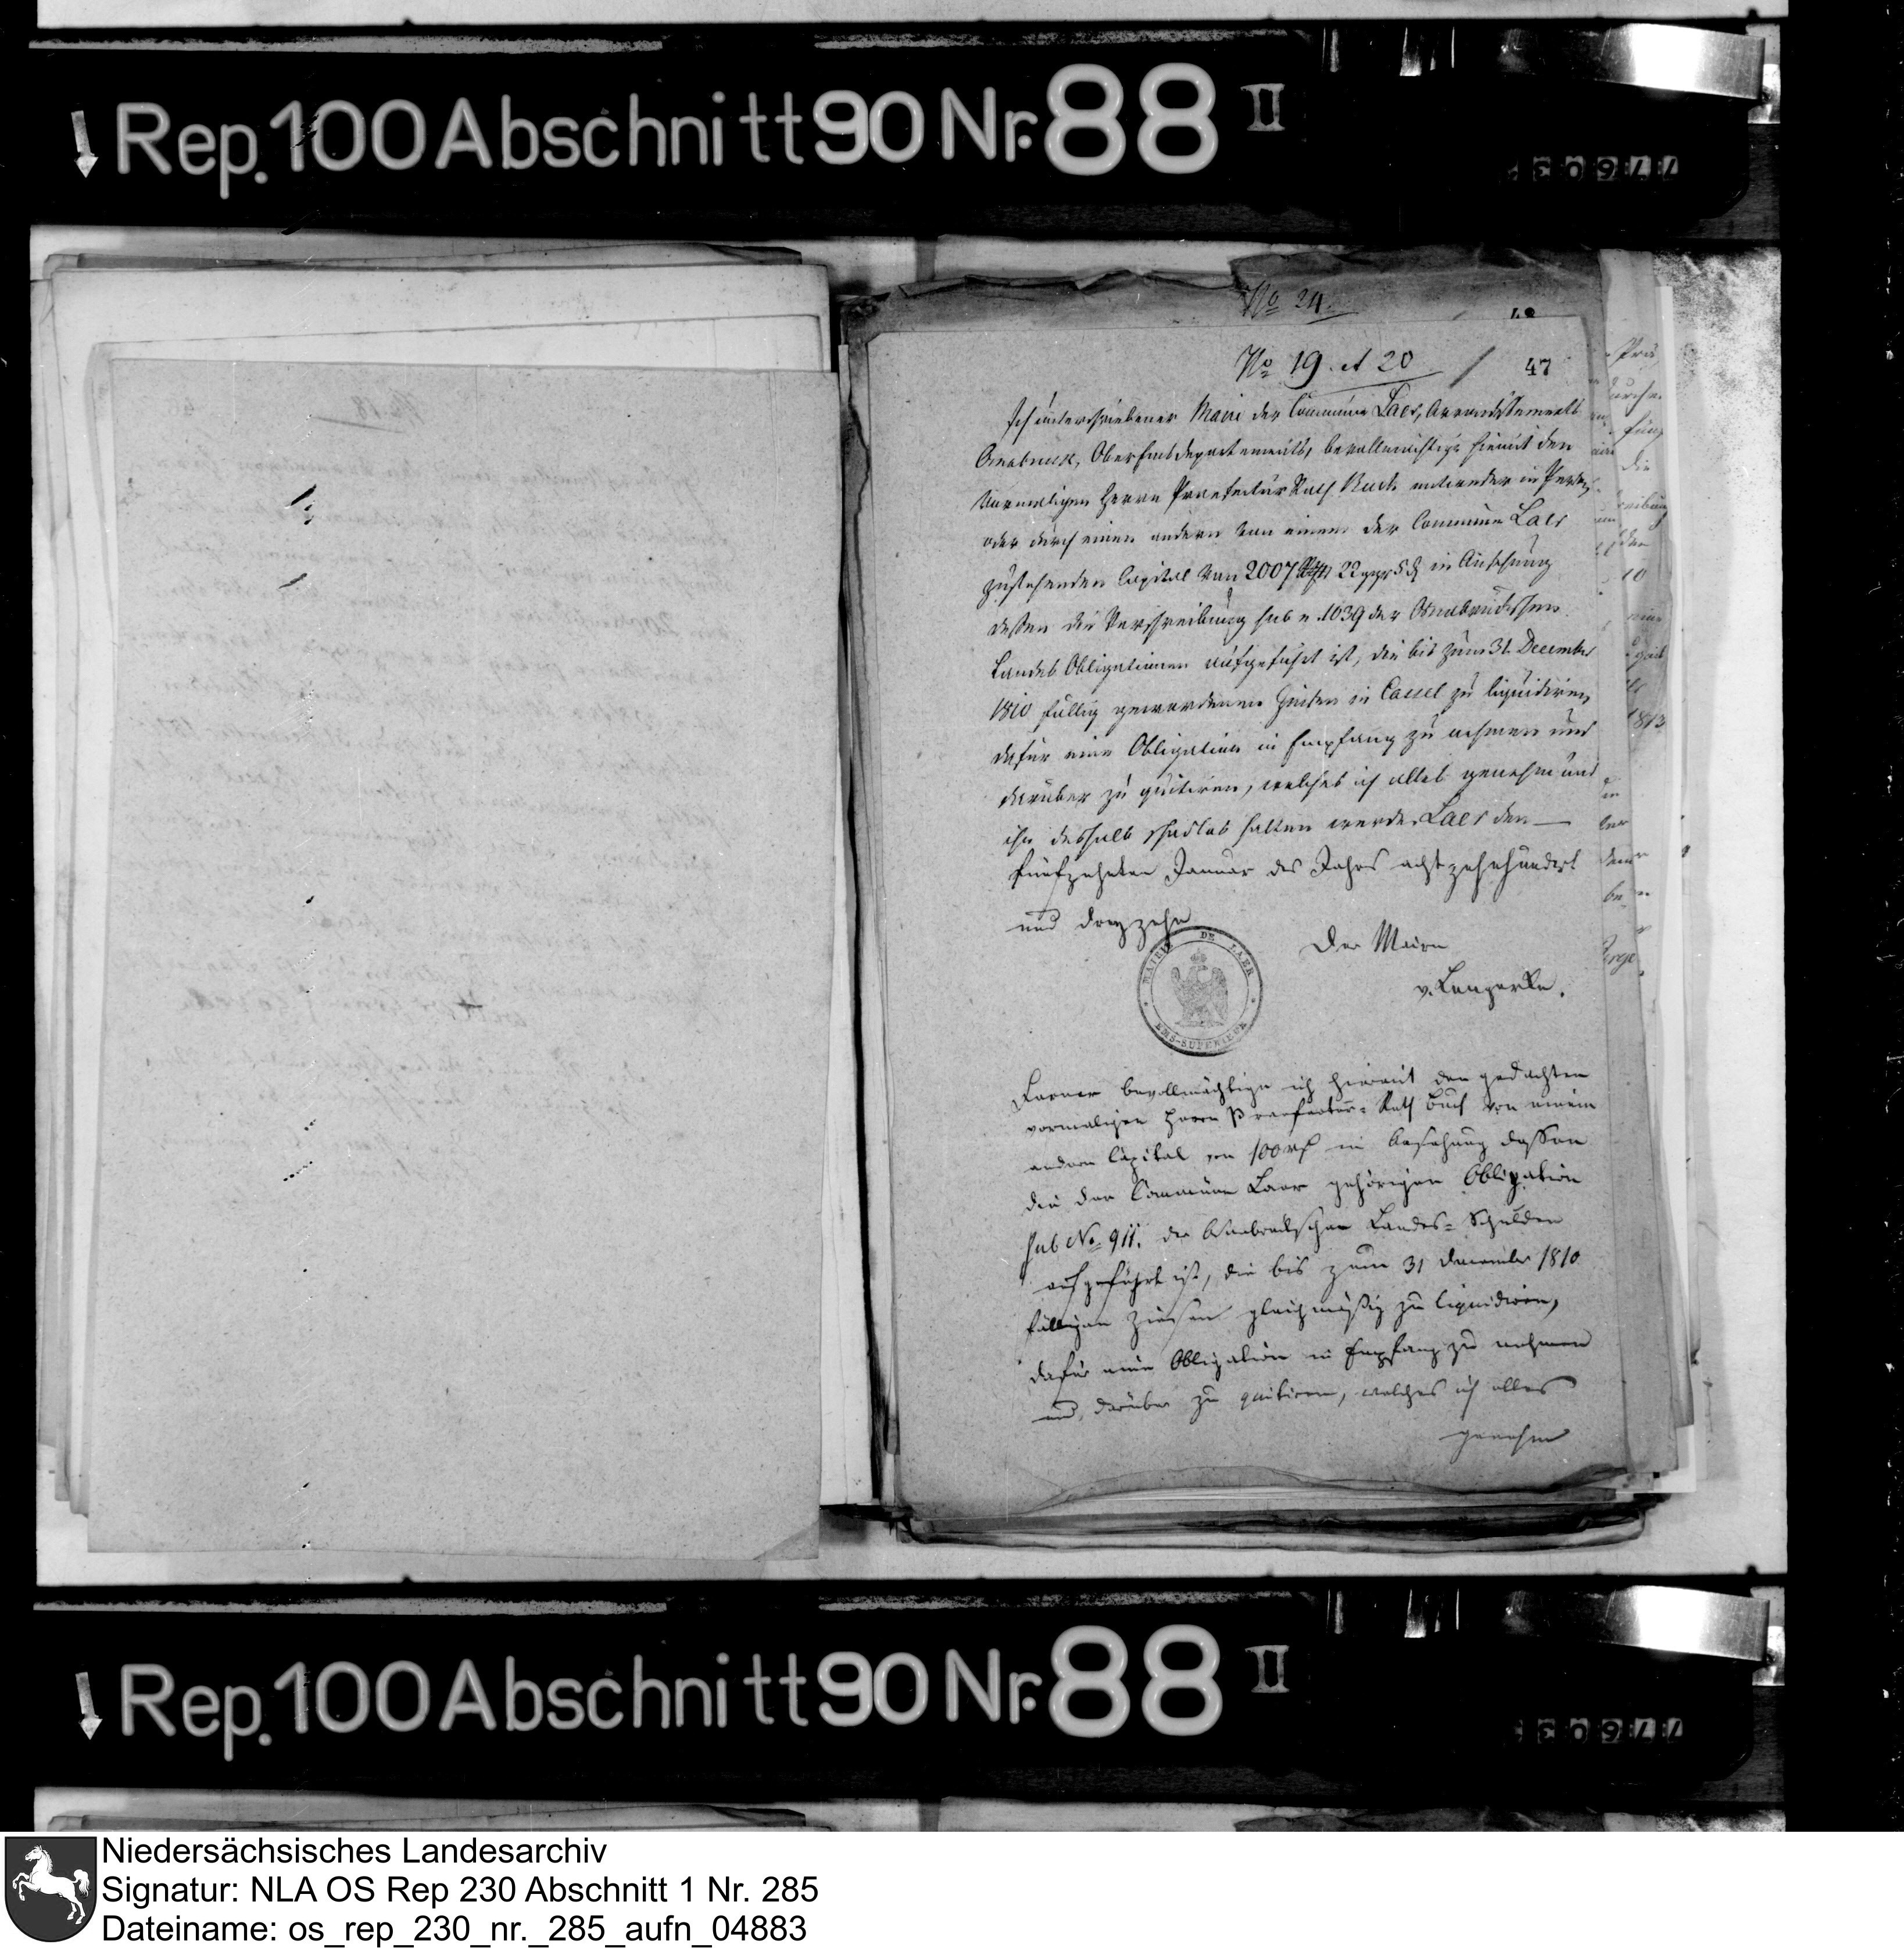 Rep. 100 Abschnitt 90 Nr. 88 II
No 24.
No 19. et 20
47
Ich unterschriebener Maire der Commune Laer, Arrondissements
Osnabrück, Oberemsdepartements, bevollmächtige hiemit den
vormaligen Herrn Praefectur Rath Buch entweder in Person
oder durch einen andern von einem der Commune Laer
zustehenden Capital von 2007 22 ggr 5 d in Ansehung
dessen die Verschreibung sub n. 1039 der Osnabrückschen
Landes Obligationen aufgeführt ist, die bis zum 31. December
1810 fällig gewordenen Zinsen in Cassel zu liquidiren,
dafür eine Obligation in Empfang zu nehmen und
darüber zu quitiren, welches ich alles genehm und
ihn deshalb schadlos halten werde. Laer den —
fünfzehnten Januar des Jahrs achtzehnhundert
und dreyzehn
Der Maire
v. Lengerke.
MAIRIE DE LAER
EMS-SUPERIEUR
Ferner bevollmächtige ich hiermit den gedachten
vormaligen Herrn Praefectur-Rath Buch von einem
andern Capital von 100 rth in Ansehung dessen
die der Commune Laer gehörigen Obligation
sub No 911. der Osnabrückschen Landes-Schulden
aufgeführt ist, die bis zum 31 December 1810
fälligen Zinsen gleichmäßig zu liquidiren,
dafür eine Obligation in Empfang zu nehmen
und darüber zu quitiren, welches ich alles
genehm
Rep. 100 Abschnitt 90 Nr. 88 II
Niedersächsisches Landesarchiv
Signatur: NLA OS Rep 230 Abschnitt 1 Nr. 285
Dateiname: os_rep_230_nr._285_aufn_04883